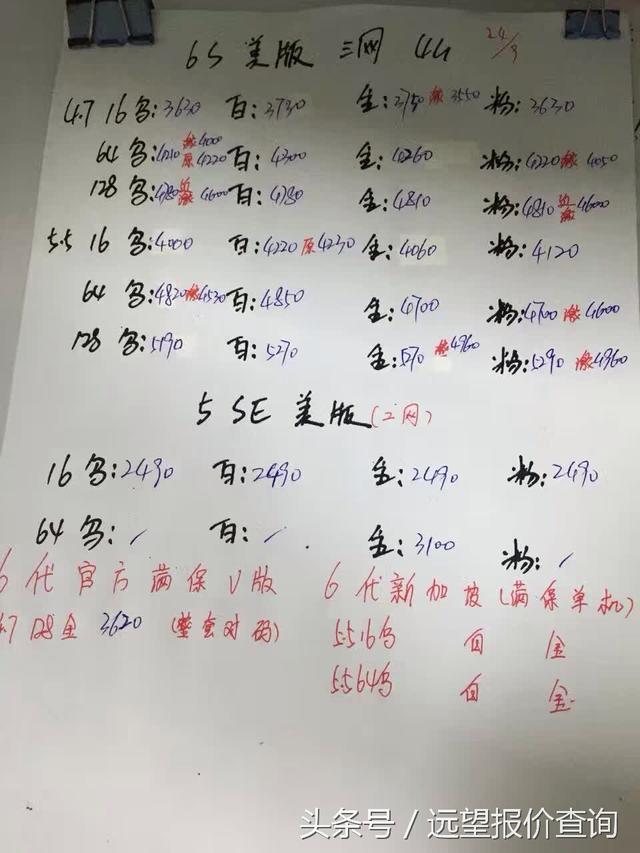 6S 美版 三网 4G 24/9
4.7 16 乌:3630 白:3730 金:3750激3550 粉:3630
64 乌:4210激4000原4220 白:4300 金:4260 粉:4220激4050
128 乌:4780激4600 白:4780 金:4810 粉:4810激4600
5.5 16 乌:4000 白:4220原4230 金:4060 粉:4120
64 乌:4820激4530 白:4850 金:4700 粉:4700激4600
128 乌:5190 白:5270 金:5270激4960 粉:5290激4960
5 SE 美版(二网)
16 乌:2490 白:2490 金:2490 粉:2490
64 乌:/ 白:/ 金:3100 粉:/
6代官方满保V版 6代新加坡(满保单机)
4.7 128金 3620 (整套对码) 5.516乌 白 金
5.564乌 白 金
头条号/远望报价查询